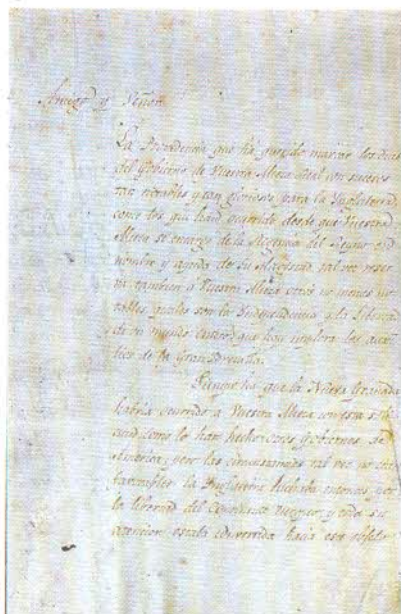 Amigo y Señor
La Providencia que ha querido marcar los dias
del Gobierno de Vuestra Alteza Real con sucesos
tan notables y tan gloriosos para la Ynglaterra,
como los que han ocurrido desde que Vuestra
Alteza se encargo de la Regencia del Reyno en
nombre y ayuda de Su Magestad, tal vez reser
va tambien a Vuestra Alteza otros no menos no
tables quales son la Yndependencia y la Libertad
de un mundo entero que hoy implora los auxi
lios de la Gran Bretaña.
Tiempo ha que la Nueva Granada
habria ocurrido a Vuestra Alteza con esta soli
citud como lo han hecho otros Gobiernos de
America, pero las circunstancias tal vez no eran
favorables. La Ynglaterra luchaba entonces por
la libertad del Continente Europeo y toda su
atencion estaba convertida hacia este objeto